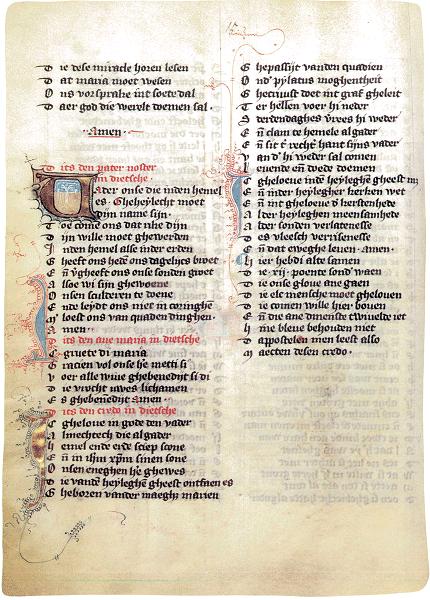 Die dese miracle horen lesen
Dat maria moet wesen
Ons vorsprake int soete dal
Daer god die werelt doemen sal.
Amen
Dits den pater noster
in dietsche
Vader onse die inden hemel
es. Gheheylecht moet
dijn name sijn.
Toe come ons dat rike dijn
Dijn wille moet ghewerden
Inden hemel alse inder erden
Gheeft ons hedē ons dagelijcs broet
Eñ vgheeft ons onse sonden groet
Alsoe wi sijn ghewoene
Onsen sculderen te doene
Ende leydt ons niet in coringhē
Verloest ons van quaden dinghen
Amen
Dits den aue maria in dietsche
Gegruete di maria
Gracien vol onse he mett di
Voer alle wiue ghebenedijt si di
Die vrucht uwes lichamen
Es ghebenedijt Amen
Dits den credo in dietsche
Ic gheloue in gode den vader
Almechtech die algader
Hemel ende erde sciep scone
Eñ in ihm xpm sinen sone
Onsen eneghen he ghewes
Die vandē heyleghē gheest ontfaen es
Gheboren vander maeght marien
Ghepassijt vanden quadien
Ond' pylatus moghentheit
Gecruust doet int graf gheleit
Ter hellen voer hi neder
Derdendaghes v'rees hi weder
Eñ clam te hemele algader
Eñ sit t' recht' hant sijns vader
Vand' hi weder sal comen
Leuende eñ doede doemen
Gheloeue indē heyleghē gheest mj
Eñ inder heylegher kerken wet
Eñ int gheloeue d' kerstenhede
Alder heyleghen meensamhede
Alder sonden verlatenesse
Des vleesch verrisenesse
Eñ dat eweghe leuen. Amen.
Hier hebdi alte samen
Die .xij. poente sond' waen
Die onse gloue ane gaen
Die elc mensche moet ghelouen
Die comen wille hier bouen
Eñ die ane dinenste twiuelde iet
Hine bleue behouden niet
Dapostelen men leest also
Maecten desen credo.